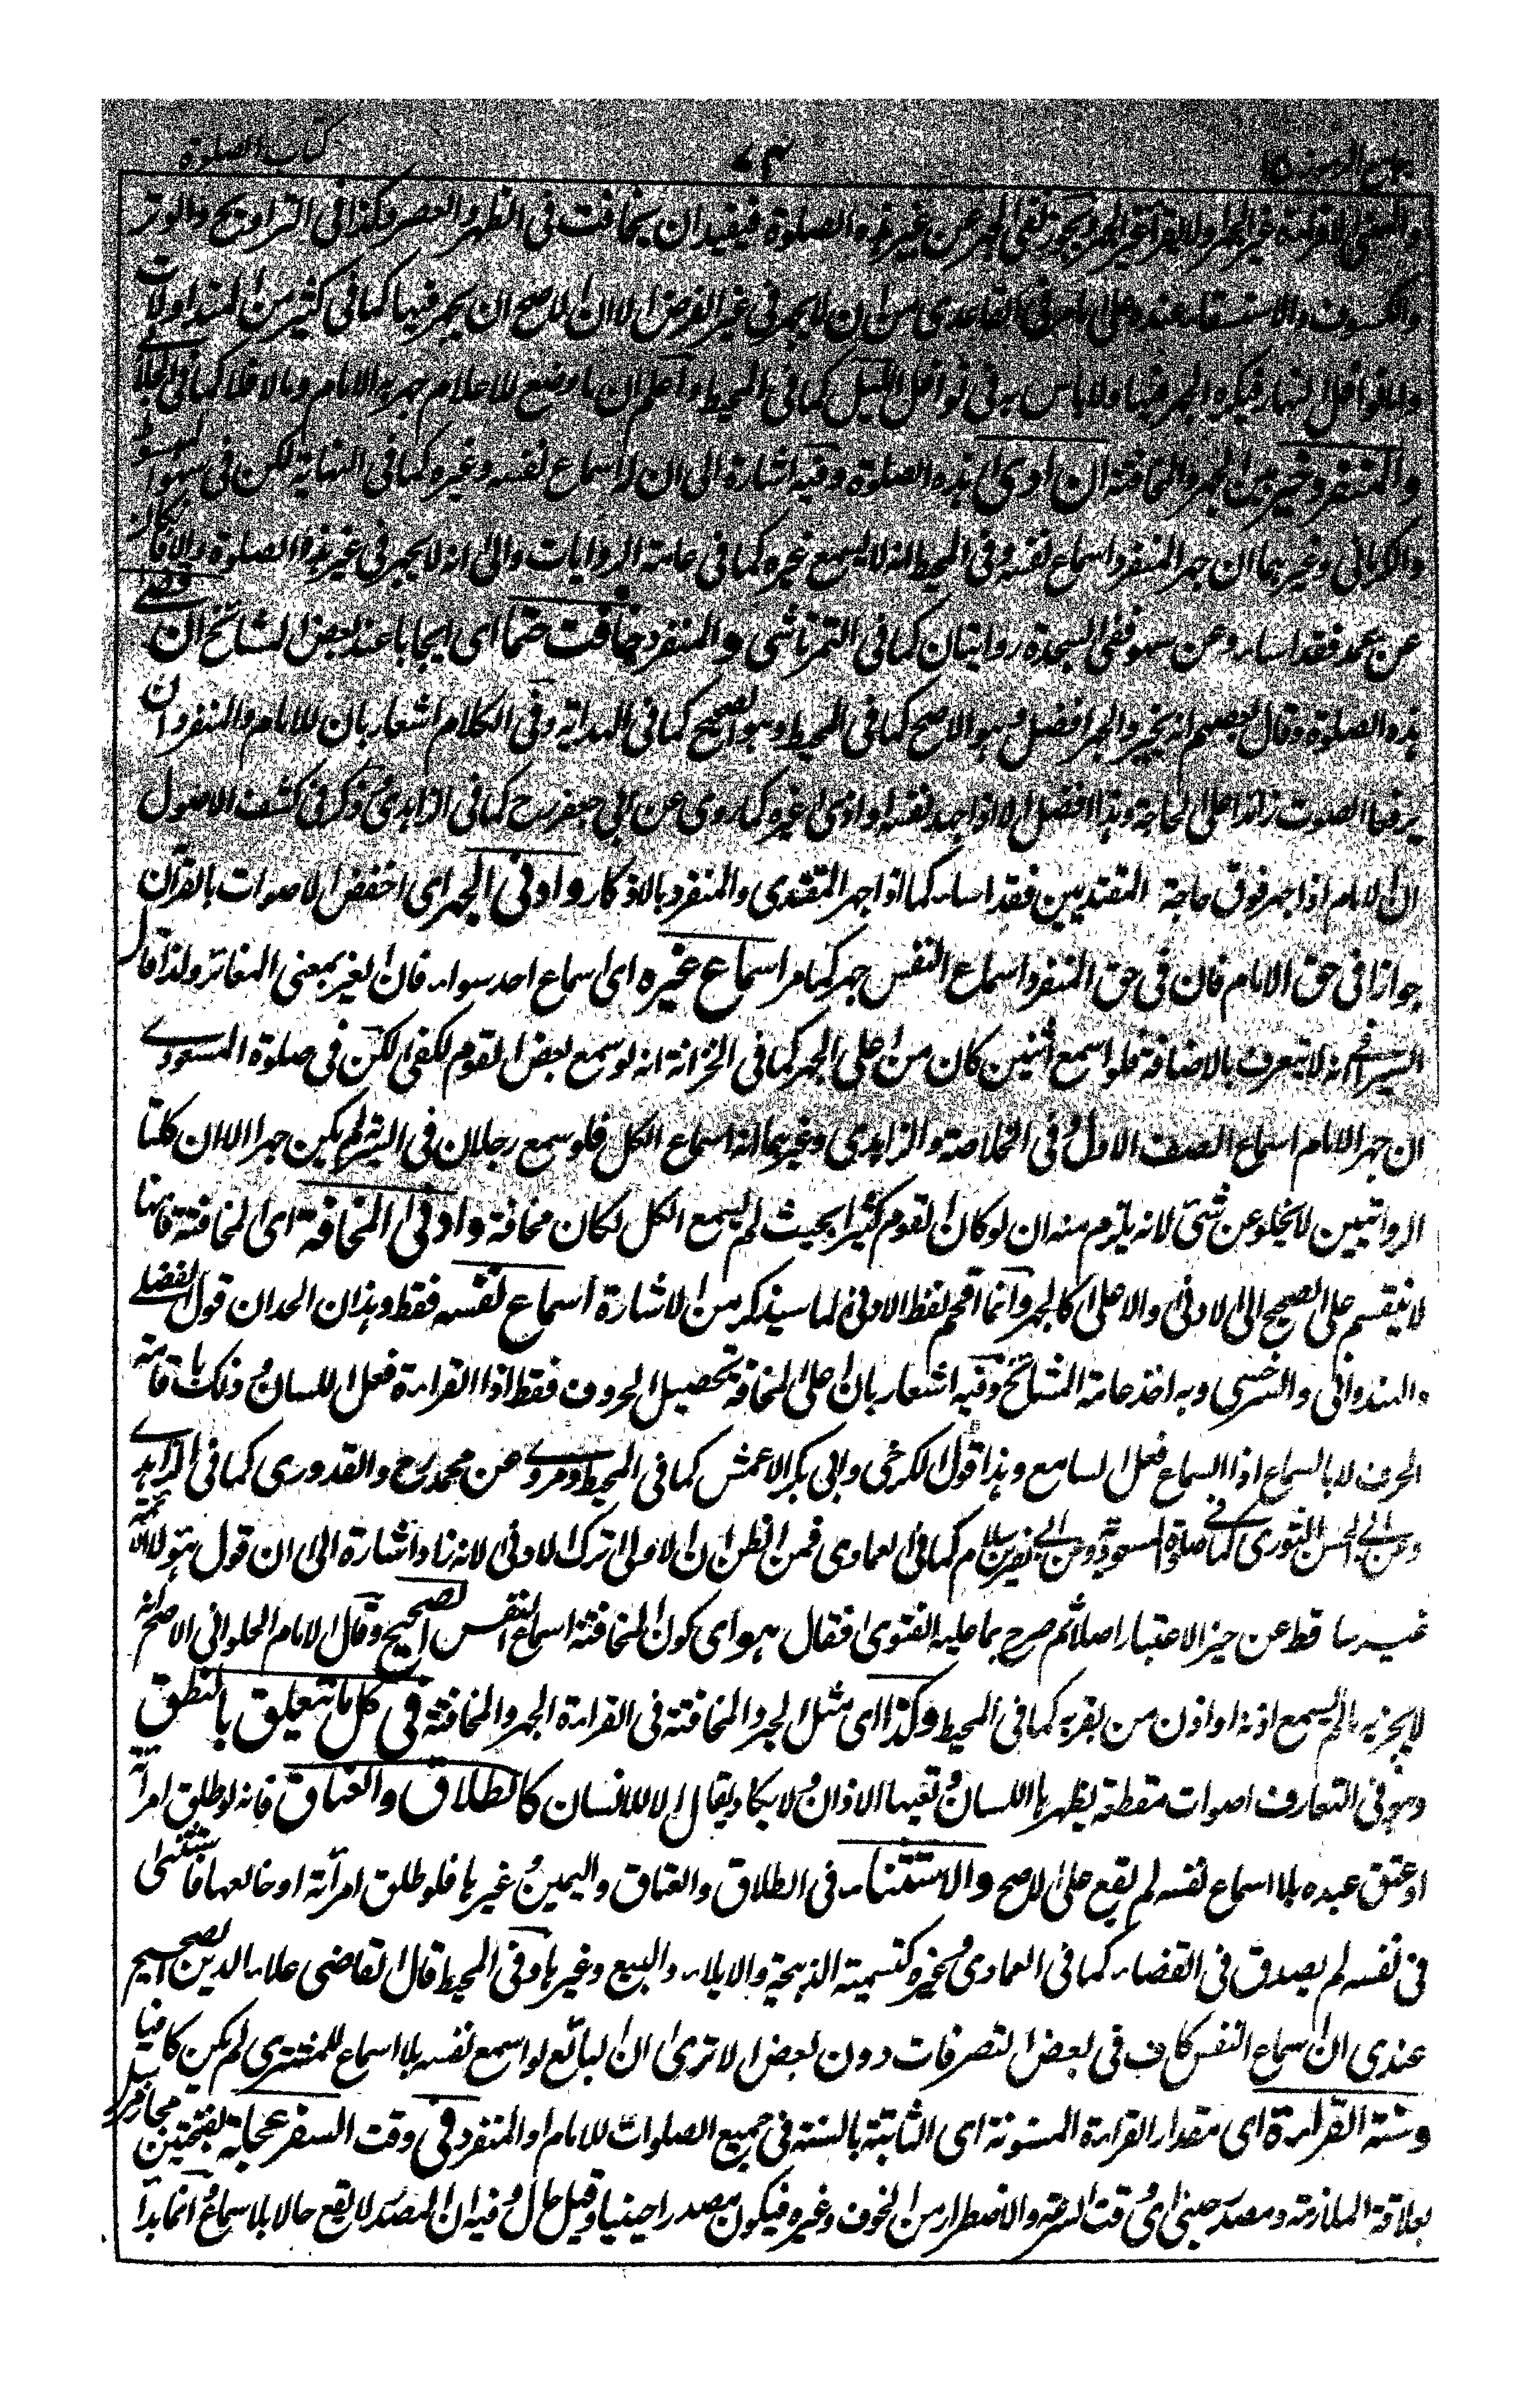 كتاب الصلوة
جامع الرموز
والمعنى الا قراءة غير الجهر ولا يقرأ غير الجهر نفى الجهر عن غير هذه الصلوة فيفيد ان يخافت فى الظهر والعصر وكذا فى التراويح والوتر
والكسوف والاستسقاء عنده على ما فى القاعدى من ان لا يجهر فى غير الفرض الا ان الاصح ان يجهر فيها كما فى كثير من المتداولات
واما نوافل النهار فيكره الجهر فيها ولا باس به فى نوافل الليل كما فى المحيط واعلم ان ما وضع للاعلام جهر به الامام وما لا فلا كما فى
والمنفرد خير بين الجهر والمخافتة ان ادى هذه الصلوة وفيه اشارة الى ان له اسماع نفسه وغيره كما فى النهاية لكن فى سهو المبسوط
والكرمانى وغيرهما ان جهر المنفرد اسماع نفسه وفى المحيط انه لا يسمع غيره كما فى عامة الروايات والى انه لا يجهر فى غير هذه الصلوة
عن محمد فقد اساء وعن سهو ففى السجدة روايتان كما فى التمرتاشى والمنفرد خافت حتما اى ايجابا عند بعض المشائخ ان قضى
هذه الصلوة وقال بعضهم انه يخير والجهر افضل وهو الاصح كما فى المحيط وهو الصحيح كما فى الهداية وفى الكلام اشعار بان للامام والمنفرد ان
يرفعا الصوت زائدا على الحاجة وهذا افضل الا اذا اجهد نفسه او اذى غيره كما روى عن ابى جعفر رح كما فى الزاهدى وذكر فى كشف الاصول
ان الامام اذا جهر فوق حاجة المقتديين فقد اساء كما اذا جهر المقتدى والمنفرد بالاذكار وادنى الجهر اى اخفض الاصوات بالقرآن
جوازا فى حق الامام فان فى حق المنفرد اسماع النفس جهر كما مر اسماع غيره اى اسماع احد سواه فان الغير بمعنى المغائر ولذا قال
السيرافى انه لا يتعرف بالاضافة فلو اسمع اثنين كان من اعلى الجهر كما فى الخزانة انه لو سمع بعض القوم لكفى لكن فى صلوة المسعودى
ان جهر الامام اسماع الصف الاول وفى الخلاصة والزاهدى وغيرهما انه اسماع الكل فلو سمع رجلان فى السرية لم يكن جهرا الا ان كلتا
الروايتين لا يخلو عن شئ لانه يلزم منه ان لو كان القوم كثيرا بحيث لم يسمع الكل لكان مخافة وادنى المخافة اى المخافتة فانها
لا ينقسم على الصحيح الى الادنى والاعلى كالجهر وانما اقحم لفظ الادنى لما سيذكر من الاشارة اسماع نفسه فقط وهذان الحدان قول الفضلى
والهندوانى والسرخسى وبه اخذ عامة المشائخ وفيه اشعار بان اعلى المخافة تحصيل الحروف فقط اذ القراءة فعل اللسان وذلك باقامة
الحرف لا بالسماع اذ السماع فعل السامع وهذا قول الكرخى وابى بكر الاعمش كما فى المحيط ومروى عن محمد رح والقدورى كما فى الزاهدى
وعن ابى الحسن الثورى كما فى صلوة المسعودى وعن ابى نصر بن سلام كما فى العمادى فمن الظن ان الاولى ترك الادنى لانه زاد اشارة الى ان قول هؤلاء الائمة
غير ساقط عن حيز الاعتبار اصلا ثم صرح بما عليه الفتوى فقال هو اى كون المخافتة اسماع النفس الصحيح وقال الامام الحلوانى الاصح انه
لا يجزيه ما لم يسمع اذنه او اذن من بقربه كما فى المحيط وكذا اى مثل الجهر والمخافتة فى القراءة الجهر والمخافتة فى كل ما يتعلق بالنطق
وهو فى التعارف اصوات مقطعة يظهرها اللسان وتعيها الاذان ولا يكاد يقال الا للانسان كالطلاق والعتاق فانه لو طلق امرأته
او عتق عبده بلا اسماع نفسه لم يقع على الاصح والاستثناء فى الطلاق والعتاق واليمين وغيرها فلو طلق امرأته او خالعها فاستثنى
فى نفسه لم يصدق فى القضاء كما فى العمادى وغيره كتسمية الذبيحة والايلاء والبيع وغيرها وفى المحيط قال القاضى علاء الدين الصحيح
عندى ان سماع النفس كاف فى بعض التصرفات دون بعض الا ترى ان البائع لو اسمع نفسه بلا اسماع للمشترى لم يكن كافيا
وسنة القراءة اى مقدار القراءة المسنونة اى الثابتة بالسنة فى جميع الصلوات للامام والمنفرد فى وقت السفر عجلة بفتحتين
بعلاقة الملازمة ومصدر حينى اى وقت السرعة والاضطرار من الخوف وغيره فيكون مصدرا حينيا وقيل حال وفيه ان المصدر لا يقع حالا بلا سماع وانما بدأ